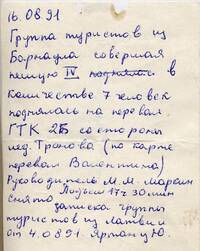 16.08.91
Группа туристов из
Барнаула совершая
пешую IV поднялась в
количестве 7 человек
поднялась на перевал
ГТК 2Б со стороны
лед. Тронова (по карте
перевал Валентина)
Руководитель М.М.
Подъем 17ч 30 мин
снята записка группы
туристов из Латвии
от 4.08.91.